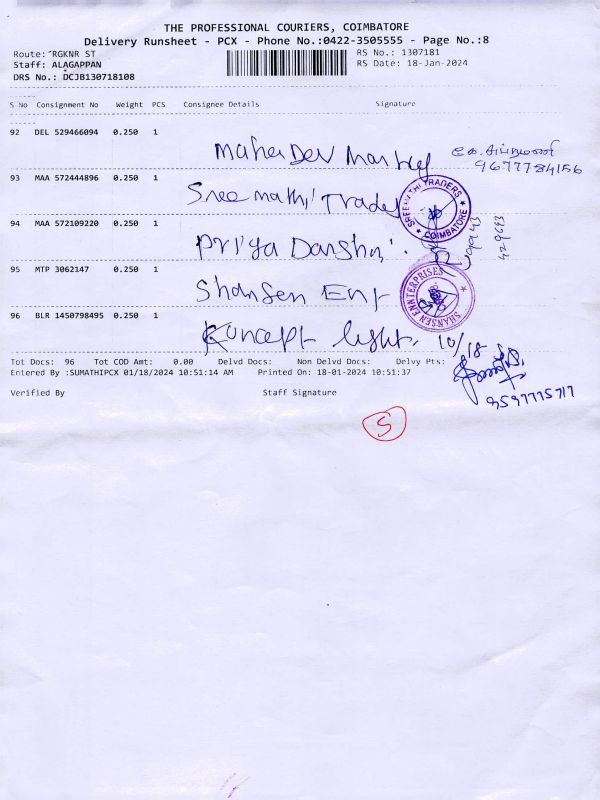 THE PROFESSIONAL COURIERS, COIMBATORE
Delivery Runsheet - PCX - Phone No.:0422-3505555 - Page No.:8
Route: RGKNR ST
RS No.: 1307181
Staff: ALAGAPPAN
RS Date: 18-Jan-2024
DRS No.: DCJB130718108
S No Consignment No Weight PCS Consignee Details Signature
92 DEL 529466094 0.250 1
Mahadev
9677784156
93 MAA 572444896 0.250 1
Sree mathi Trades
SREEMATHI TRADERS
COIMBATORE
94 MAA 572109220 0.250 1
Priya Darshni
429643
95 MTP 3062147 0.250 1
Shansen Ent
SHANSEN ENNTERPRISES
96 BLR 1450798495 0.250 1
Koncept light. 10/18
Tot Docs: 96 Tot COD Amt: 0.00 Delvd Docs: Non Delvd Docs: Delvy Pts:
Entered By :SUMATHIPCX 01/18/2024 10:51:14 AM Printed On: 18-01-2024 10:51:37
9597775717
Verified By Staff Signature
5